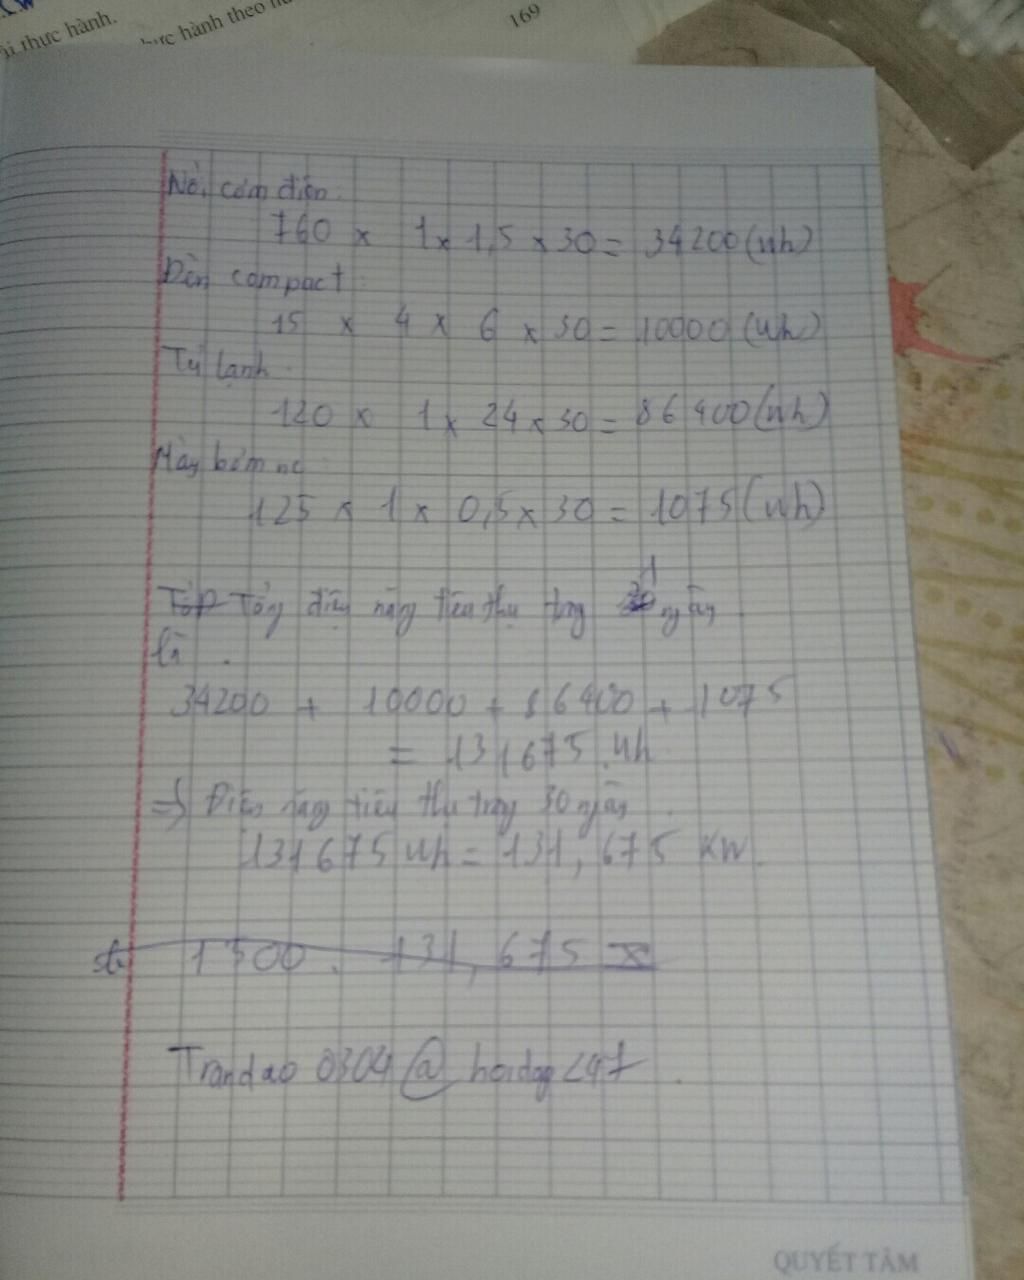 ài thực hành.
hực hành theo
169
Nồi cơm điện.
760 x 1 x 1,5 x 30 = 34200 (wh)
Đèn compact:
15 x 4 x 6 x 30 = 10000 (wh)
Tủ lạnh.
120 x 1 x 24 x 30 = 86400 (wh)
Máy bơm nc
125 x 1 x 0,5 x 30 = 1075 (wh)
Tổng điện năng tiêu thụ trong ngày
là.
34200 + 10000 + 86400 + 1075
= 131675 wh
=> Điện năng tiêu thụ trong 30 ngày.
131675 wh = 131,675 KW.
1500. 131,675 x
Trandao 0304 @ hoidap 247.
QUYẾT TÂM